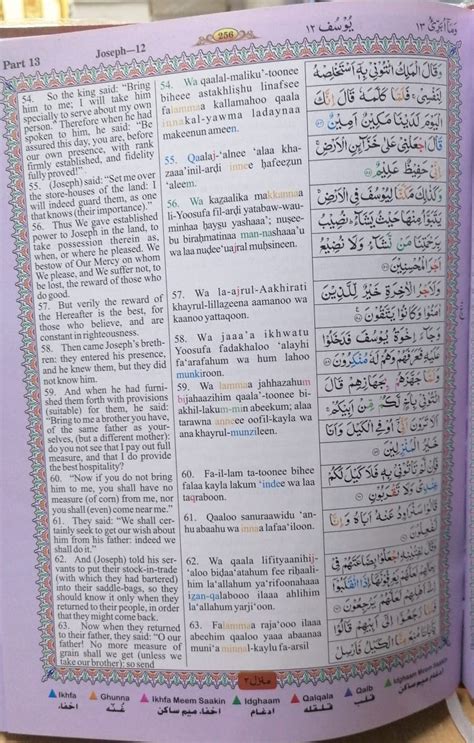 Part 13
Joseph—12
256
يُوسُف ١٢
وَمَآ اُبَرِّئُ ١٣
54. So the king said: “Bring
him to me; I will take him
specially to serve about my own
person.” Therefore when he had
spoken to him, he said: “Be
assured this day, you are, before
our own presence, with rank
firmly established, and fidelity
fully proved!”.
55. (Joseph) said: “Set me over
the store-houses of the land: I
will indeed guard them, as one
that knows (their importance).”
56. Thus We gave established
power to Joseph in the land, to
take possession therein as,
when, or where he pleased. We
bestow of Our Mercy on whom
We please, and We suffer not, to
be lost, the reward of those who
do good.
57. But verily the reward of
the Hereafter is the best, for
those who believe, and are
constant in righteousness.
58. Then came Joseph’s breth-
ren: they entered his presence,
and he knew them, but they did
not know him.
59. And when he had furni-
shed them forth with provisions
(suitable) for them, he said:
“Bring to me a brother you have,
of the same father as your-
selves, (but a different mother):
do you not see that I pay out full
measure, and that I do provide
the best hospitality?
60. “Now if you do not bring
him to me, you shall have no
measure (of corn) from me, nor
you shall (even) come near me.”
61. They said: “We shall cer-
tainly seek to get our wish about
him from his father: indeed we
shall do it.”
62. And (Joseph) told his ser-
vants to put their stock-in-trade
(with which they had bartered)
into their saddle-bags, so they
should know it only when they
returned to their people, in order
that they might come back.
63. Now when they returned
to their father, they said: “O our
father! No more measure of
grain shall we get (unless we
take our brother): so send
54. Wa qaalal-maliku’-toonee
bihee astakhlishu linafsee
falammaa kallamahoo qaala
innakal-yawma ladaynaa
makeenun ameen.
55. Qaalaj-‘alnee ‘alaa kha-
zaaa’inil-arḍi innee ḥafeezun
‘aleem.
56. Wa kazaalika makkunnaa
li-Yoosufa fil-arḍi yatabaw-wau-
minhaa ḥaysu yashaaa’; nuṣee-
bu biraḥmatinaa man-nashaaa’u
wa laa nuḍee‘uajral muḥsineen.
57. Wa la-ajrul-Aakhirati
khayrul-lillazeena aamanoo wa
kaanoo yattaqoon.
58. Wa jaaa’a ikhwatu
Yoosufa fadakhaloo ‘alayhi
fa‘arafahum wa hum lahoo
munkiroon.
59. Wa lammaa jahhazahum
bijahaazihim qaala’-toonee bi-
akhil-lakum-min abeekum; alaa
tarawna annee oofil-kayla wa
ana khayrul-munzileen.
60. Fa-il-lam ta-toonee bihee
falaa kayla lakum ‘indee wa laa
taqraboon.
61. Qaaloo sanuraawidu ‘an-
hu abaahu wa innaa lafaa‘iloon.
62. Wa qaala lifityaanihij-
‘aloo biḍaa‘atahum fee riḥaali-
him la‘allahum ya‘rifoonahaaa
izan-qalabooo ilaaa ahlihim
la‘allahum yarji‘oon.
63. Falammaa raja‘ooo ilaaa
abeehim qaaloo yaaa abaanaa
muni‘a minnal-kaylu fa-arsil
وَقَالَ الْمَلِكُ ائْتُوْنِيْ بِهٖٓ اَسْتَخْلِصْهُ
لِنَفْسِيْ ۚ فَلَمَّا كَلَّمَهٗ قَالَ اِنَّكَ
الْيَوْمَ لَدَيْنَا مَكِيْنٌ اَمِيْنٌ ۝
قَالَ اجْعَلْنِيْ عَلٰى خَزَآئِنِ الْاَرْضِ ۚ
اِنِّيْ حَفِيْظٌ عَلِيْمٌ ۝
وَكَذٰلِكَ مَكَّنَّا لِيُوْسُفَ فِي الْاَرْضِ ۚ
يَتَبَوَّاُ مِنْهَا حَيْثُ يَشَآءُ ؕ نُصِيْبُ
بِرَحْمَتِنَا مَنْ نَّشَآءُ وَلَا نُضِيْعُ
اَجْرَ الْمُحْسِنِيْنَ ۝
وَلَاَجْرُ الْاٰخِرَةِ خَيْرٌ لِّلَّذِيْنَ
اٰمَنُوْا وَكَانُوْا يَتَّقُوْنَ ۝
وَجَآءَ اِخْوَةُ يُوْسُفَ فَدَخَلُوْا
عَلَيْهِ فَعَرَفَهُمْ وَهُمْ لَهٗ مُنْكِرُوْنَ ۝
وَلَمَّا جَهَّزَهُمْ بِجَهَازِهِمْ قَالَ
ائْتُوْنِيْ بِاَخٍ لَّكُمْ مِّنْ اَبِيْكُمْ ۚ
اَلَا تَرَوْنَ اَنِّيْٓ اُوْفِي الْكَيْلَ وَاَنَا
خَيْرُ الْمُنْزِلِيْنَ ۝
فَاِنْ لَّمْ تَاْتُوْنِيْ بِهٖ فَلَا كَيْلَ لَكُمْ
عِنْدِيْ وَلَا تَقْرَبُوْنِ ۝
قَالُوْا سَنُرَاوِدُ عَنْهُ اَبَاهُ وَاِنَّا
لَفٰعِلُوْنَ ۝
وَقَالَ لِفِتْيٰنِهِ اجْعَلُوْا بِضَاعَتَهُمْ فِيْ
رِحَالِهِمْ لَعَلَّهُمْ يَعْرِفُوْنَهَآ اِذَا انْقَلَبُوْٓا
اِلٰٓى اَهْلِهِمْ لَعَلَّهُمْ يَرْجِعُوْنَ ۝
فَلَمَّا رَجَعُوْٓا اِلٰٓى اَبِيْهِمْ قَالُوْا
يٰٓاَبَانَا مُنِعَ مِنَّا الْكَيْلُ فَاَرْسِلْ
منزل ٣
Ikhfa
Ghunna
Ikhfa Meem Saakin
Idghaam
Qalqala
Qalb
Idghaam Meem Saakin
اخفاء
غُنّه
اخفاء میم ساکن
ادغام
قلقله
قلب
ادغام میم ساکن